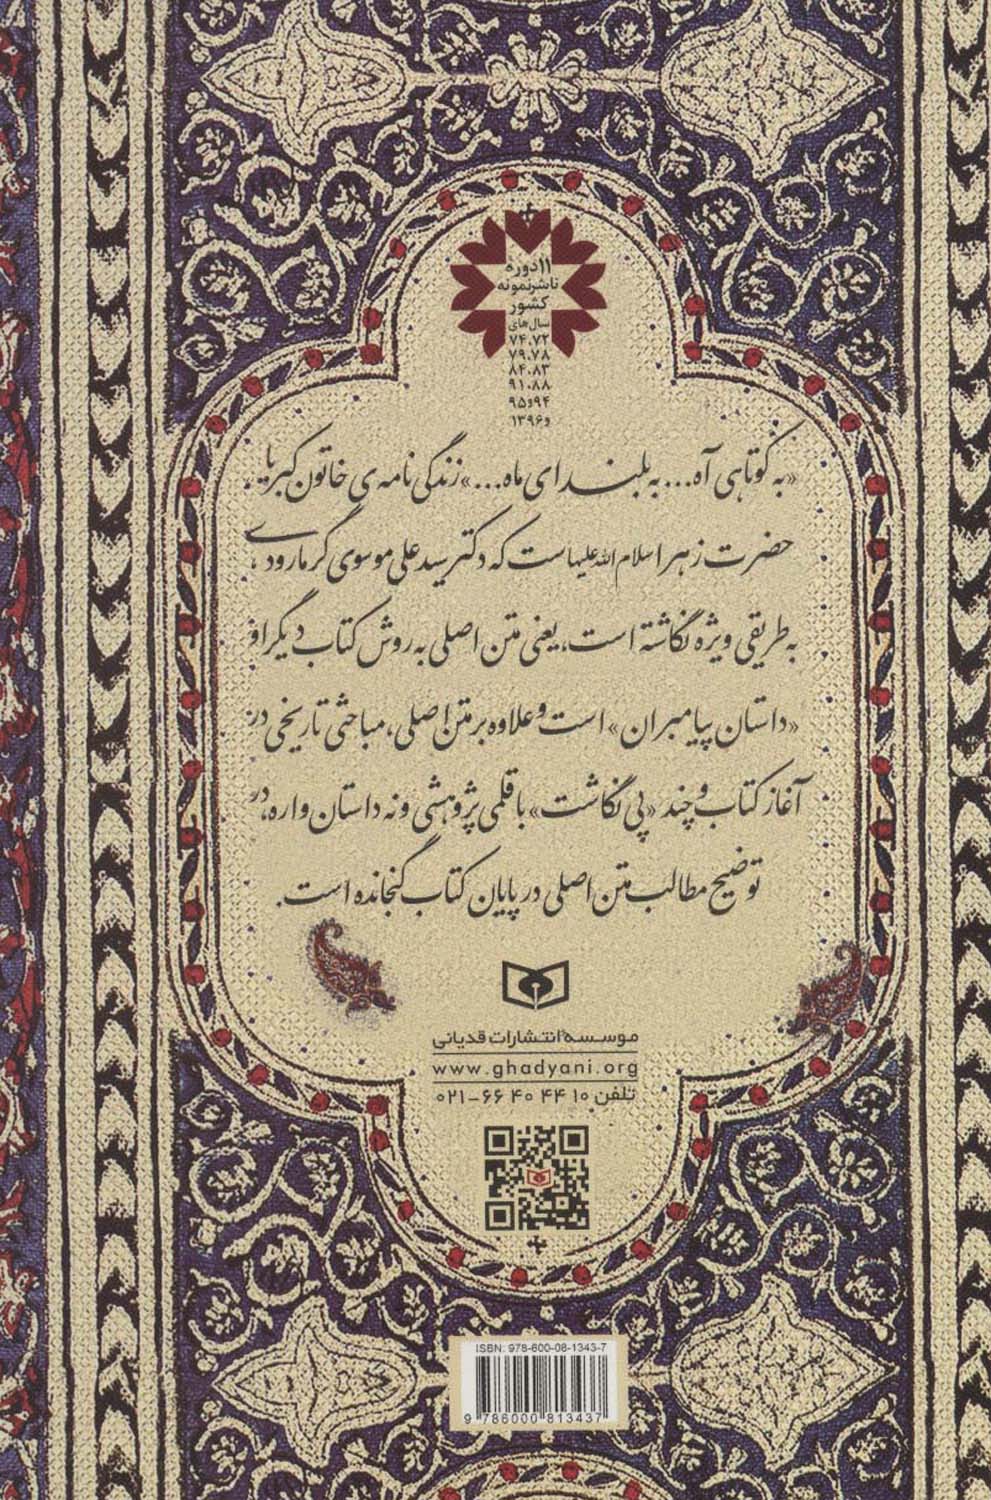 ۱۱ دوره
ناشر نمونه
کشور
سال های
۷۴.۷۲
۷۹.۷۸
۸۴.۸۳
۹۱.۸۸
۹۴و۹۵
و۱۳۹۶
«به کوتاهی آه... به بلندای ماه...» زندگی نامه‌ی خاتون کبریا،
حضرت زهرا سلام الله علیها ست که دکتر سید علی موسوی گرمارودی،
به طریقی ویژه نگاشته است، یعنی متن اصلی به روش کتاب دیگر او
«داستان پیامبران» است و علاوه بر متن اصلی، مباحثی تاریخی در
آغاز کتاب و چند «پی نگاشت» با قلمی پژوهشی و نه داستان واره، در
توضیح مطالب متن اصلی در پایان کتاب گنجانده است.
موسسه انتشارات قدیانی
www.ghadyani.org
تلفن: ۱۰ ۴۴ ۴۰ ۶۶-۰۲۱
ISBN: 978-600-08-1343-7
9 786000 813437